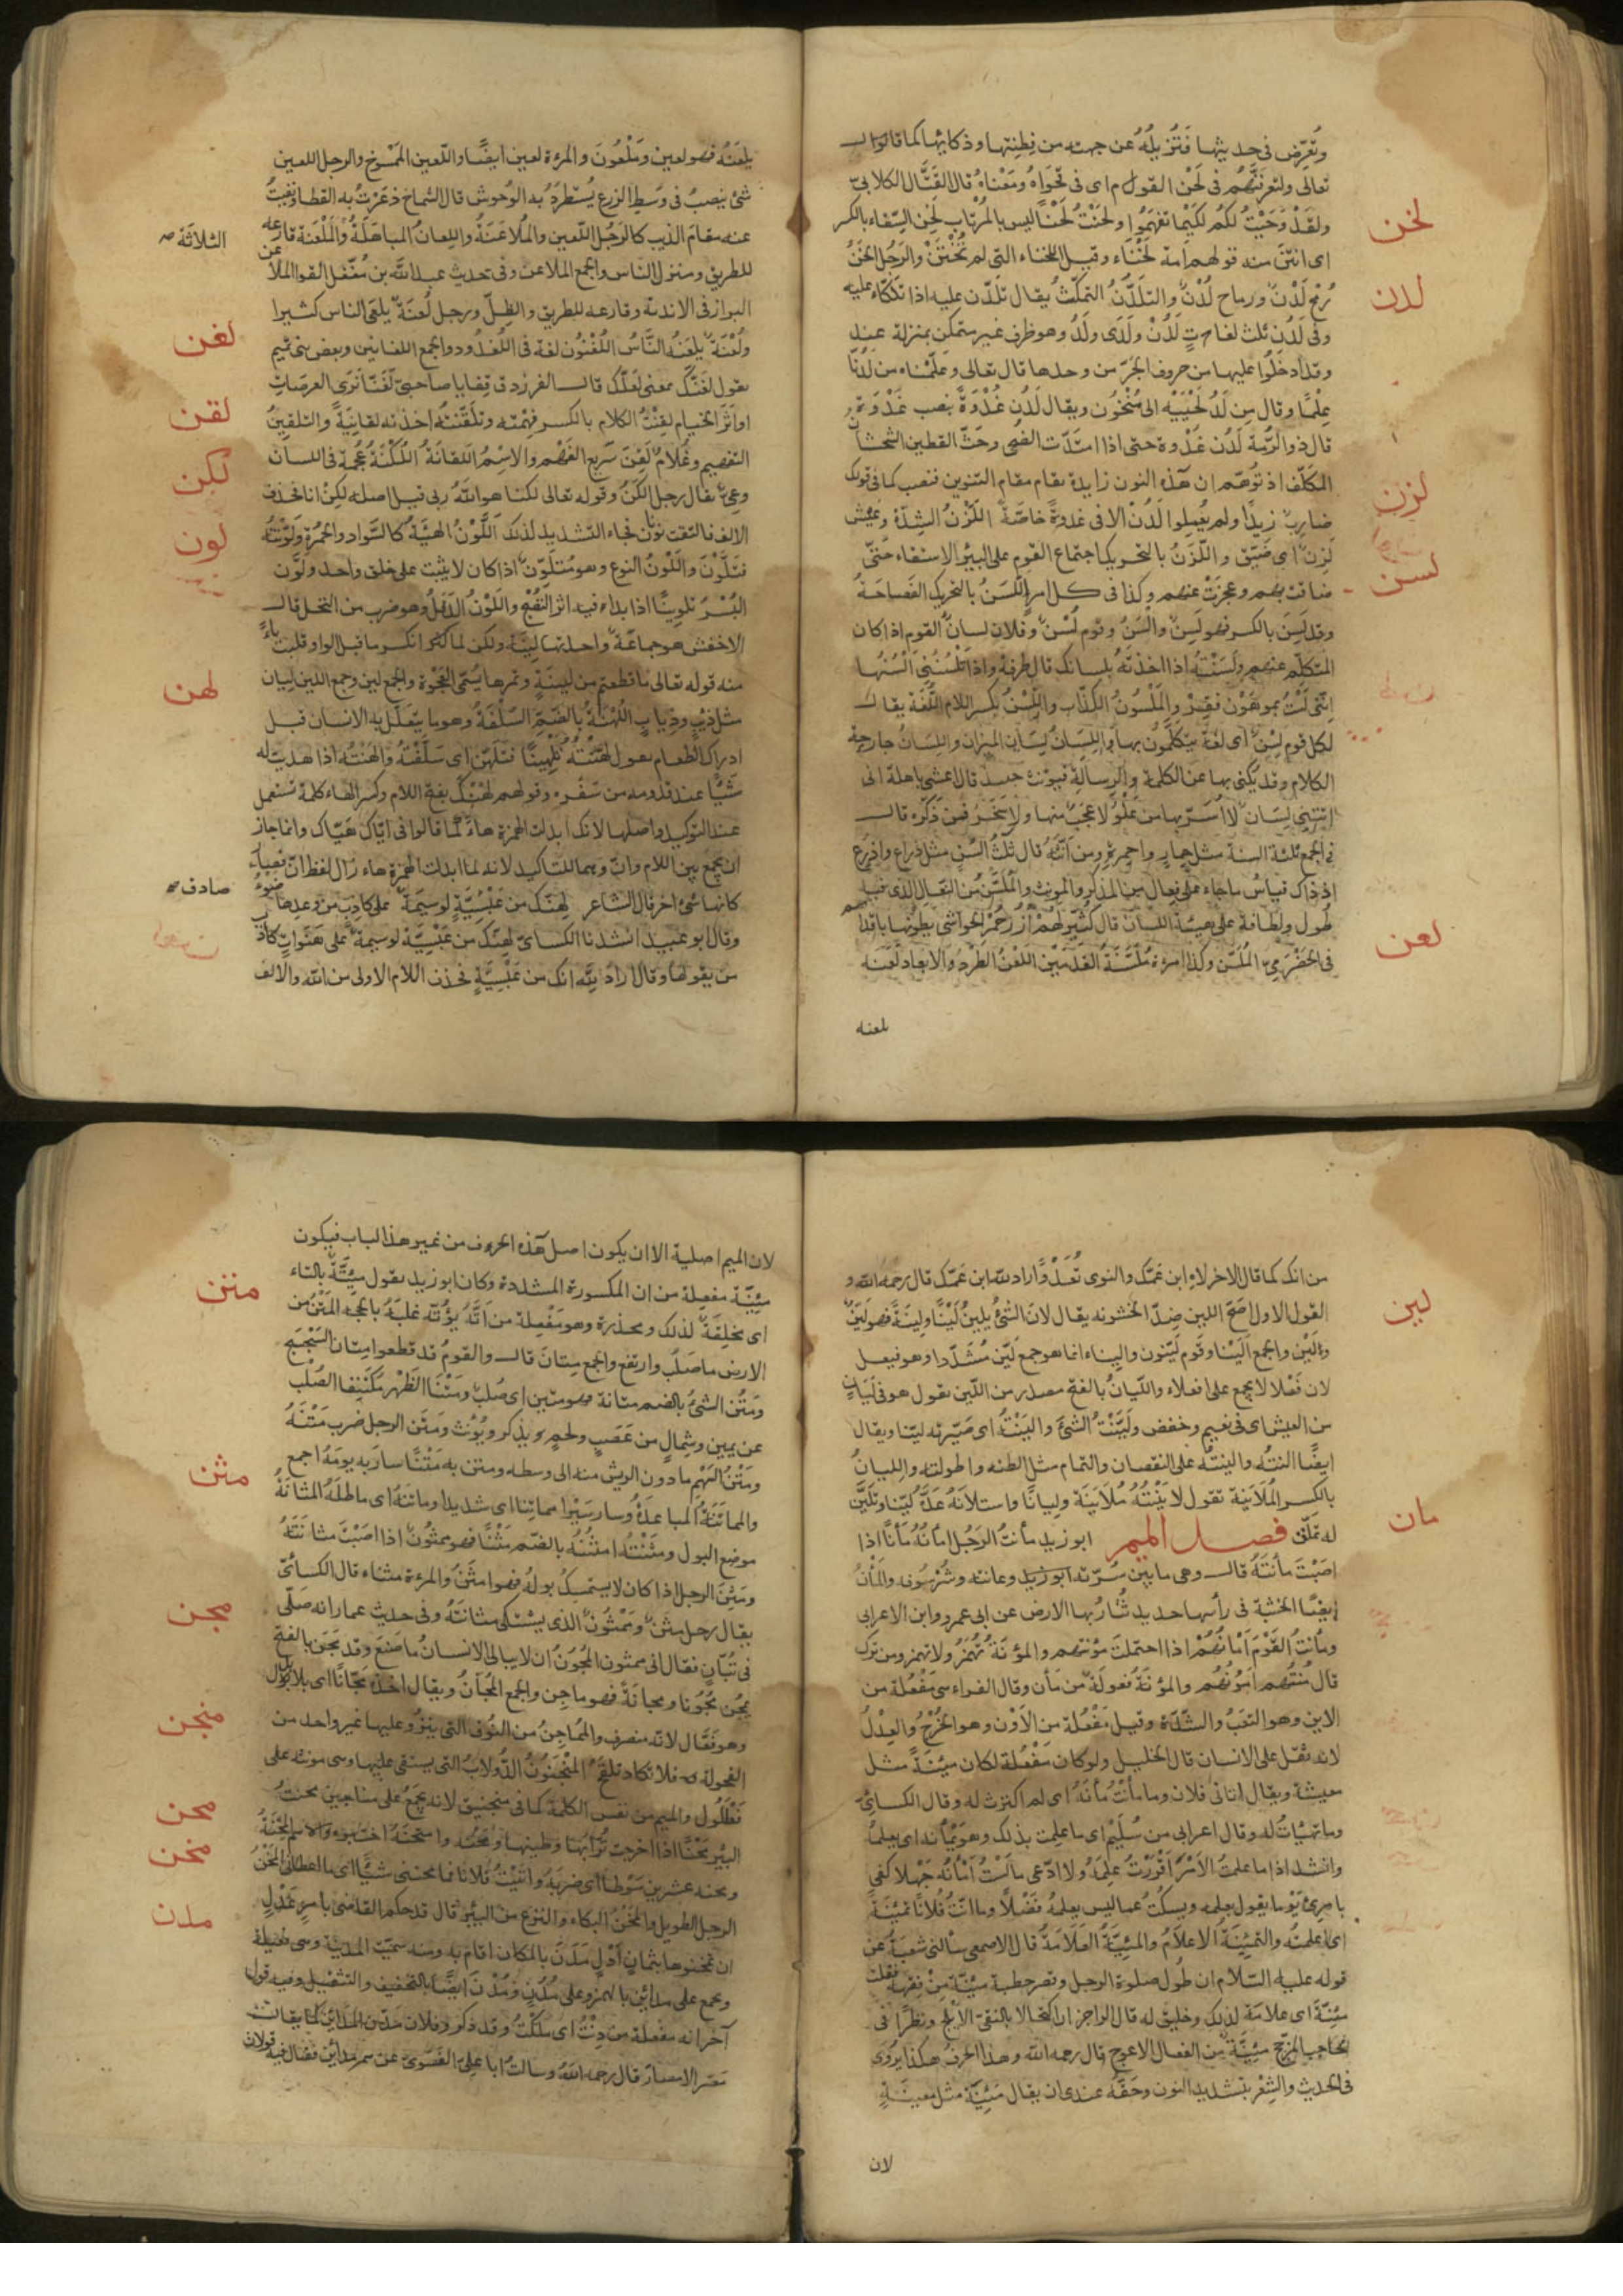 وتُعرّض فى حديثها فتزيله عن جهته من فطنتها وذكائها كما قال
تعالى ولتعرفنّهم فى لحن القول اى فى فحواه ومعناه قال القتّال الكلابىّ
لخن
ولقد وحيت لكم لكيما تفهموا ولحنت لحنًا ليس بالمرتاب لخن السقاء بالكسر
اى انتن منه قولهم امة لخناء وقيل اللخناء التى لم تختن والرجل الخن
لدن
رمح لدن ورماح لدن والتلدّن التمكّث يقال تلدّن عليه اذا تلكّاء عليه
وفى لدن ثلث لغات لدن ولدى ولد وهو ظرف غير متمكن بمنزلة عند
وقد ادخلوا عليها من حروف الجرّ من وحدها قال تعالى وعلّمناه من لدنّا
علمًا وقال من لد لحييه الى منخون ويقال لدن غدوة بنصب غدوة
قال ذو الرّمة لدن غدوة حتى اذا امتدّت الضحى وحثّ القطين الشحشان
المكلّف اذ توهّم ان هذه النون زايدة تقام مقام التنوين فنصب كما فى قولك
لزن
ضارب زيدًا ولم يعملوا لدن الا فى غدوة خاصّة اللزن الشدّة وعيش
لزن اى ضيّق واللزن بالتحريك اجتماع القوم على البئر للاستقاء حتى
لسن
ضاقت بهم وعجزت عنهم وكذا فى كل امر اللسن بالتحريك الفصاحة
وقد لسن بالكسر فهو لسن والسن وقوم لسن وفلان لسان القوم اذا كان
المتكلّم عنهم ولسنته اذا اخذته بلسانك قال طرفة واذا تلسننى السنها
اننى لست بموهون فقر والملسون الكذّاب واللسن بكسر اللام اللغة يقال
لكل قوم لسن اى لغة يتكلّمون بها واللسان لسان الميزان واللسان جارحة
الكلام وقد يكنى بها عن الكلمة والرسالة فيونث حينئذ قال اعشى باهلة انى
اتتنى لسان لا اسرّ بها من علو لا عجب منها ولا سخر فمن ذكّره قال
فى الجمع ثلثة السنة مثل حمار واحمرة ومن انّثه قال ثلث السن مثل ذراع واذرع
اذ ذاك قياس ما جاء على فعال من المذكر والمونث والملسّن من النعال الذى فيه
طول ولطافة على هيئة اللسان قال كثيّر لهم ازر حمر الحواشى يطونها باقدا
لعن
فى الحضرمىّ الملسّن وكذا امرءة ملسّنة القدمين اللعن الطرد والابعاد لعنه
يلعنه
يلعنه فهو لعين وملعون والمرءة لعين ايضًا واللعين الممسوخ والرجل اللعين
شئ ينصب فى وسط الزرع يستطرد به الوحوش قال الشماخ ذعرت به القطا ونفيت
عنه مقام الذيب كالرجل اللعين والملاعنة واللعان المباهلة والملعنة قارعة
الثلاثة صح
للطريق ومنزل الناس والجمع الملاعن وفى حديث عبد الله بن مغفل اتقوا الملاعن
البراز فى الاندية وقارعة للطريق والظلّ ورجل لعنة يلعن الناس كثيرا
لغن
ولعنة يلعنه النّاس اللغنون لغة فى اللغدود والجمع اللغانين وبعض بنى تميم
يقول لغنّك بمعنى لعلّك قال الفرزدق قفا يا صاحبىّ لغنّا نرى العرصات
لقن
او اثر الخيام لقنت الكلام بالكسر فهمته وتلقّنته اخذته لقانية والتلقين
التفهيم وغلام لقن سريع الفهم والاسم اللقانة اللكنة عجمة فى اللسان
لكن
وعىّ يقال رجل الكن وقوله تعالى لكنا هو الله ربى قيل اصله لكن انا فحذف
لون
الالف فالتقت نونان فجاء التشديد لذلك اللون الهيئة كالسواد والحمرة ولوّنته
فتلوّن واللون النوع وهو متلوّن اذا كان لا يثبت على خلق واحد ولوّن
البسر تلوينًا اذا بداء فيه اثر النضج واللون الدقل وهو ضرب من النخل قال
الاخفش هو جماعة واحدتها لينة ولكن لما كسر ما قبل الواو قلبت ياءً
لهن
منه قوله تعالى ما قطعتم من لينة وتمرها يسمّى العجوة والجمع لين وجمع اللين ليان
مثل ذيب وذياب اللهنة بالضم السلفة وهو ما يتعلّل به الانسان قبل
ادراك الطعام يقول لهّنته تلهينًا فتلهّن اى سلّفته والهنته اذا اهديت له
شيًا عند قدومه من سفره وقولهم لهنّك بفتح اللام وكسر الهاء كلمة تستعمل
عند التوكيد واصلها لانّك ابدلت الهمزة هاءً كما قالوا فى ايّاك هيّاك وانما جاز
ان يجمع بين اللام وانّ وهما للتاكيد لانه لما ابدلت الهمزة هاء زال لفظ انّ فصار
صادف صح
كانها شئ اخر قال الشاعر لهنّك من عبسيّة لوسيمة على كاذب من وعدها ضوء
وقال ابو عبيد انشدنا الكسائىّ لهنّك من عبسيّة لوسيمة على هنوات كاذب
من يقولها وقال اراد لله انك من عبسيّة فحذف اللام الاولى من الله والالف
من انك كما قال الاخر لاه ابن عمّك والنوى تعدو اراد لله ابن عمّك قال رحمه الله و
لين
القول الاول اصحّ اللين ضدّ الخشونة يقال لان الشئ يلين لينًا ولينة فهو ليّن
ولين والجمع اليناء وقوم ليّنون واليناء انما هو جمع ليّن مشدّدا وهو فيعل
لان فعلا لا يجمع على افعلاء والليان بالفتح مصدر من اللين يقول هو فى ليان
من العيش اى فى نعيم وخفض وليّنت الشئ والينته اى صيّرته ليّنا ويقال
ايضًا النته والينته على النقصان والتمام مثل اطلته واطولته والليان
بالكسر الملاينة تقول لاينته ملاينة وليانًا واستلانه عدّه ليّنا وتليّن
مان
له تملّق فصل الميم ابو زيد مأنت الرجل امأنه مأنًا اذا
اصبت مأنته قال وهى ما بين سرّته ابو زيد وعانته وشرسوفه والمأن
ايضًا الخشبة فى رأسها حديد تثار بها الارض عن ابى عمرو وابن الاعرابى
ومأنت القوم امأنهم اذا احتملت مؤنتهم والمؤنة تهمز ولا تهمز ومن ترك
قال منتهم امونهم والمؤنة فعولة من مأن وقال الفراء هى مفعلة من
الاين وهو التعب والشدّة وقيل مفعلة من الاون وهو الخرج والعدل
لانه ثقل على الانسان قال الخليل ولو كان مفعلة لكان مئينة مثل
معيشة ويقال اتانى فلان وما مأنت مأنه اى لم اكترث له وقال الكسائى
وما تهيّات له وقال اعرابى من سليم اى ما علمت بذلك وهو يمأنه اى يعلمه
وانشد اذا ما علمت الامر اقررت علمه ولا ادّعى ما لست امأنه جهلا كفى
بامرئ يوما يقول بعلمه ويسكت عما ليس يعلمه فضلًا وما انّت فلانا تمئينة
اى اعلمته والتمئنة الاعلام والمئنّة العلامة قال الاصمعى سألنى شعبة عن
قوله عليه السلام ان طول صلوة الرجل وقصر خطبة مئنّة من فقهه فقلت
مئنّة اى علامة لذلك وخليق له قال الراجز ان اكتحالا بالنقىّ الابلج ونظرًا فى
الحاجب المزجّج مئنّة من الفعال الاعوج قال رحمه الله وهذا الحرف هكذا يروى
فى الحديث والشعر بتشديد النون وحقّه عندى ان يقال مئينة مثل معينة
لان
لان الميم اصلية الا ان يكون اصل هذا الحرف من غير هذا الباب فيكون
مئنّة مفعلة من انّ المكسورة المشددة وكان ابو زيد يقول مئتّة بالتاء
متن
اى مخلقة لذلك ومجدرة وهو مفعلة من اتّه يؤتّه غلبه بالحجة المتن من
الارض ما صلب وارتفع والجمع متان قال والقوم قد قطعوا متان السجسج
ومتن الشئ بالضم متانة فهو متين اى صلب ومتنا الظهر مكتنفا الصلب
عن يمين وشمال من عصب ولحم يذكر ويؤنث ومتن الرجل ضرب متنه
ومتن السهم ما دون الريش منه الى وسطه ومتن به متنًا سار به يومه اجمع
مثن
والمماتنة المباعدة وسار سيرًا مماتنا اى شديدا وماتنه اى ماطله المثانة
موضع البول ومثنته امثنه بالضم مثنًا فهو ممثون اذا اصبت مثانته
ومثن الرجل اذا كان لا يستمسك بوله فهو امثن والمرءة مثناء قال الكسائىّ
مجن
يقال رجل مثن وممثون الذى يشتكى مثانته وفى حديث عمار انه صلّى
فى تبّان فقال انى ممثون المجون ان لا يبالى الانسان ما صنع وقد مجن بالفتح
يمجن مجونا ومجانة فهو ماجن والجمع المجّان ويقال اخذه مجّانًا اى بلا بدل
منجن
وهو فعّال لانه منصرف والمماجن من النوق التى ينزو عليها غير واحد من
الفحولة فلا تكاد تلقح المنجنون الدولاب التى يستقى عليها وهى مونثة على
محن
فعللول والميم من نفس الكلمة كما فى منجنيق لانه يجمع على مناجين محنت
مخن
البئر محنًا اذا اخرجت ترابها وطينها ومحنته وامتحنته اختبرته والاسم المحنة
ومحنه عشرين سوطا اى ضربه واتيت فلانا فما محننى شيًا اى ما اعطانى المخن
مدن
الرجل الطويل والمخن البكاء والنزع من البئر قال قد حكم القاضى بامر عدل
ان تمخنوها بثمان ادل مدن بالمكان اقام به ومنه سمّيت المدينة وهى فعيلة
وتجمع على مدائن بالهمز وعلى مدن ومدن ايضًا بالتخفيف والتثقيل وفيه قول
آخر انه مفعلة من دنت اى ملكت وقد ذكر وفلان مدّن المدائن كما يقال
مصّر الامصار قال رحمه الله وسالت ابا علىّ الفسوىّ عن همز مدائن فقال فيه قولان